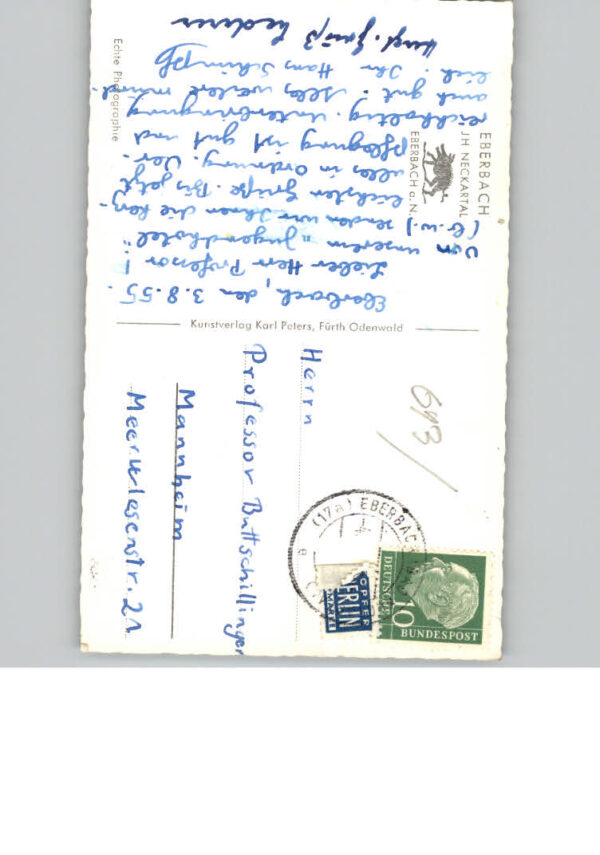 EBERBACH
JH NECKARTAL
EBERBACH a. N.
Eberbach, den 3.8.55.
Lieber Herr Professor!
Von unserem „Jugendhotel"
(G.W.) senden wir Ihnen die herz-
lichsten Grüße. Bis jetzt
alles in Ordnung. Ver-
pflegung ist gut und
reichhaltig. Unterbringung
auch gut. Alles weitere münd-
lich. Ihr Hans Schimpf
Hrzl. Gruß Lederer
Echte Photographie
Kunstverlag Karl Peters, Fürth Odenwald
693
Herrn
Professor Buttschillinger
Mannheim
Meerwiesenstr. 21
(17a) EBERBACH
a
NOTOPFER
BERLIN
STEUERMARKE
DEUTSCHE
BUNDESPOST
10